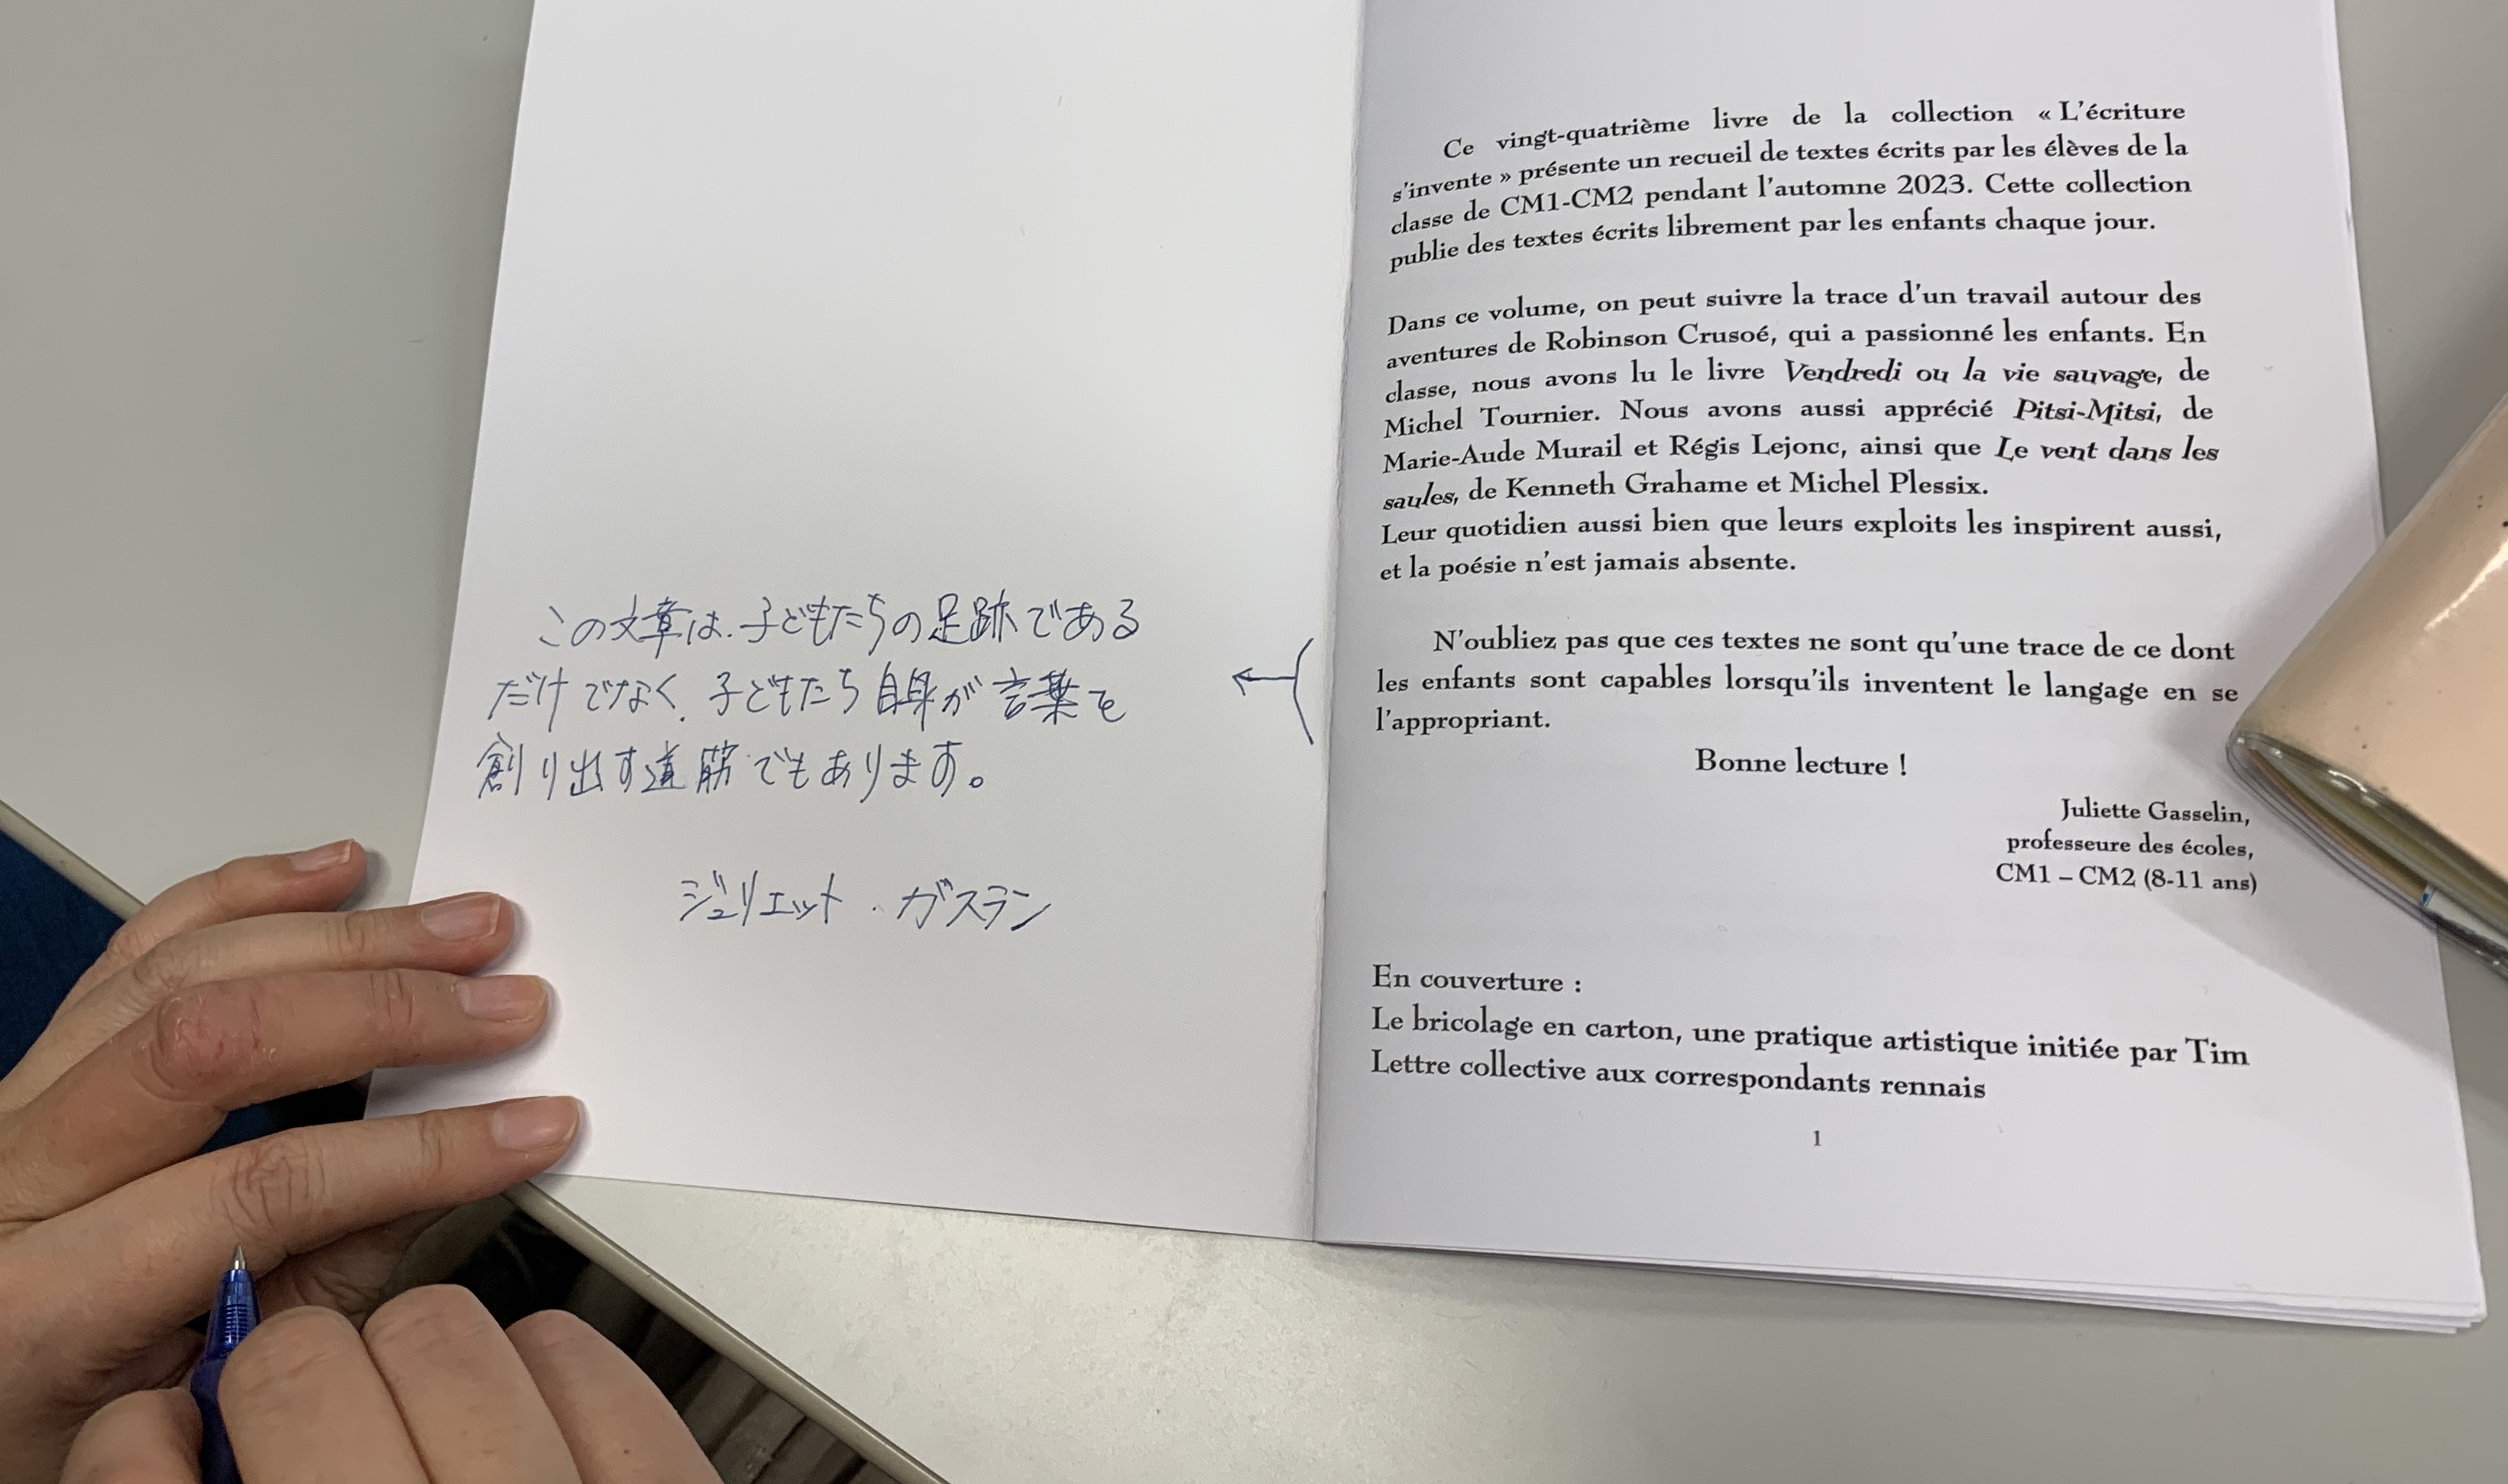 この文章は、子どもたちの足跡である
だけでなく、子どもたち自身が言葉を
創り出す道筋でもあります。
ジュリエット・ガスラン
Ce vingt-quatrième livre de la collection « L'écriture
s'invente » présente un recueil de textes écrits par les élèves de la
classe de CM1-CM2 pendant l'automne 2023. Cette collection
publie des textes écrits librement par les enfants chaque jour.
Dans ce volume, on peut suivre la trace d'un travail autour des
aventures de Robinson Crusoé, qui a passionné les enfants. En
classe, nous avons lu le livre Vendredi ou la vie sauvage, de
Michel Tournier. Nous avons aussi apprécié Pitsi-Mitsi, de
Marie-Aude Murail et Régis Lejonc, ainsi que Le vent dans les
saules, de Kenneth Grahame et Michel Plessix.
Leur quotidien aussi bien que leurs exploits les inspirent aussi,
et la poésie n'est jamais absente.
N'oubliez pas que ces textes ne sont qu'une trace de ce dont
les enfants sont capables lorsqu'ils inventent le langage en se
l'appropriant.
Bonne lecture !
Juliette Gasselin,
professeure des écoles,
CM1 – CM2 (8-11 ans)
En couverture :
Le bricolage en carton, une pratique artistique initiée par Tim
Lettre collective aux correspondants rennais
1